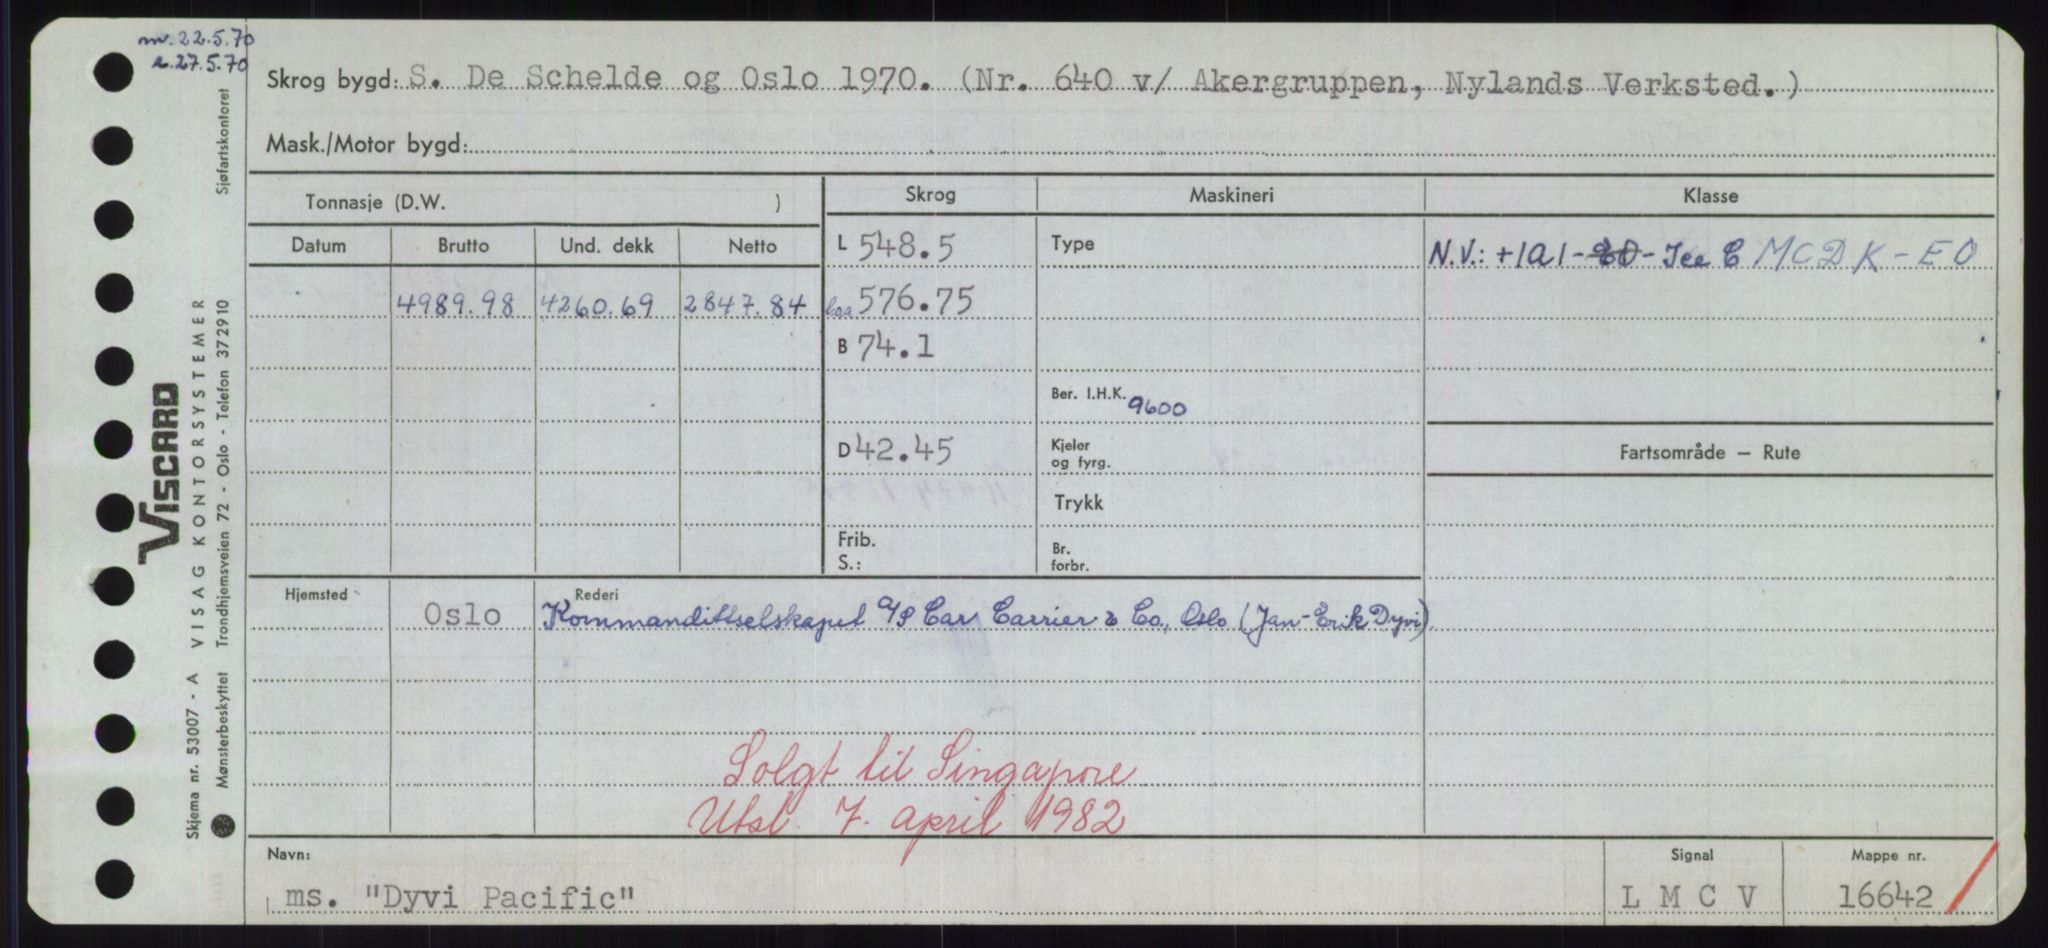 m. 22.5.70
r. 27.5.70
Skrog bygd: S. De Schelde og Oslo 1970. (Nr. 640 v/ Akergruppen, Nylands Verksted.)
Mask./Motor bygd:
Tonnasje (D.W. )
Skrog
Maskineri
Klasse
Datum
Brutto
Und. dekk
Netto
4989.98
4260.69
2847.84
L 548.5
Loa 576.75
B 74.1
D 42.45
Frib.
S.:
Type
Ber. I.H.K. 9600
Kjeler
og fyrg.
Trykk
Br.
forbr.
N.V.: +1A1 - - Ice C MCDK-EO
Fartsområde – Rute
Hjemsted
Rederi
Oslo
Kommandittselskapet A/S Car Carrier & Co., Oslo (Jan-Erik Dyvi).
Solgt til Singapore
Utsl. 7. april 1982
Navn:
ms. "Dyvi Pacific"
Signal
LMCV
Mappe nr.
16642
VISCARD
VISAG KONTORSYSTEMER
Trondhjemsveien 72 - Oslo - Telefon 372910
Sjøfartskontoret
Skjema nr. 53007 - A
Mønsterbeskyttet